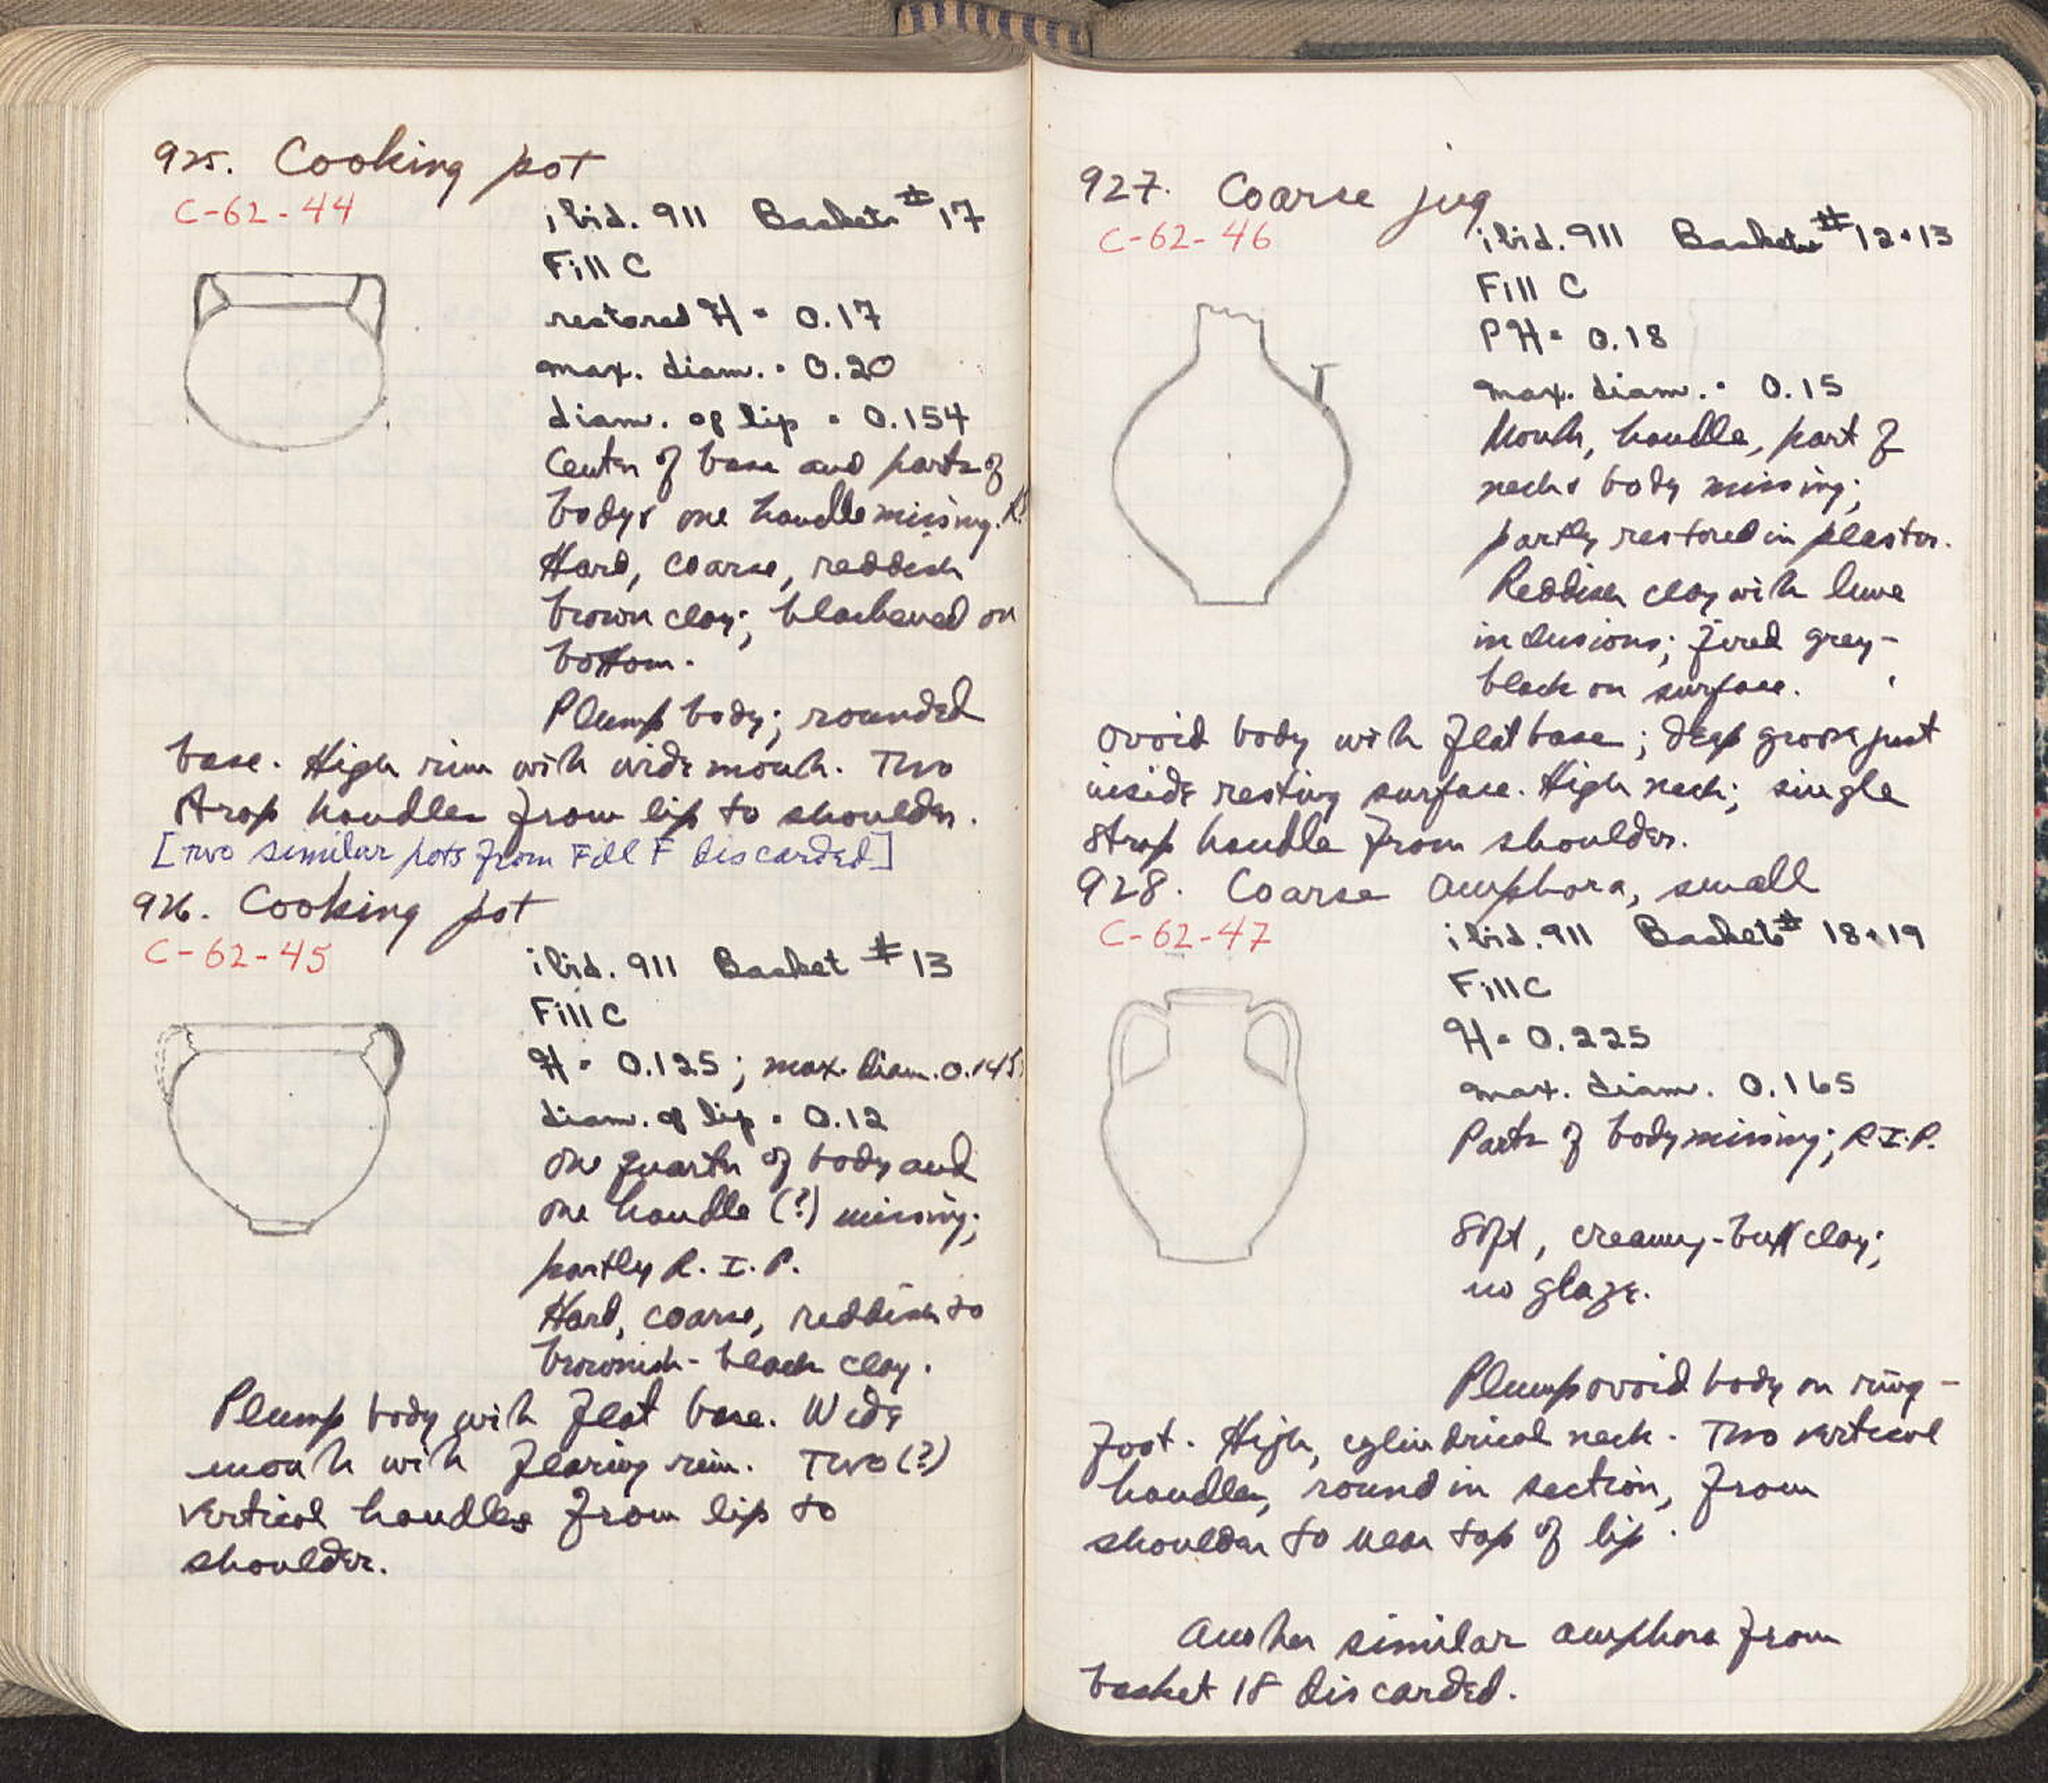 925. Cooking pot
C-62-44
ibid. 911 Baskets #17
Fill C
restored H = 0.17
max. diam. = 0.20
diam. of lip = 0.154
Center of base and parts of
body & one handle missing.
Hard, coarse, reddish
brown clay; blackened on
bottom.
Plump body; rounded
base. High rim with wide mouth. Two
strap handles from lip to shoulder.
[Two similar pots from Fill F discarded]
926. Cooking pot
C-62-45
ibid. 911 Basket #13
Fill C
H = 0.125; max. diam. 0.145
diam. of lip = 0.12
One quarter of body and
one handle (?) missing;
partly R.I.P.
Hard, coarse, reddish to
brownish-black clay.
Plump body with flat base. Wide
mouth with flaring rim. Two (?)
vertical handles from lip to
shoulder.
927. Coarse jug
C-62-46
ibid. 911 Baskets #12+13
Fill C
PH = 0.18
max. diam. = 0.15
Mouth, handle, part of
neck & body missing;
partly restored in plaster.
Reddish clay with lime
inclusions; fired grey-
black on surface.
Ovoid body with flat base; deep groove just
inside resting surface. High neck; single
strap handle from shoulder.
928. Coarse amphora, small
C-62-47
ibid. 911 Baskets # 18+19
Fill C
H = 0.225
max. diam. 0.165
Parts of body missing; R.I.P.
Soft, creamy-buff clay;
no glaze.
Plump ovoid body on ring-
foot. High, cylindrical neck. Two vertical
handles, round in section, from
shoulder to near top of lip.
Another similar amphora from
basket 18 discarded.